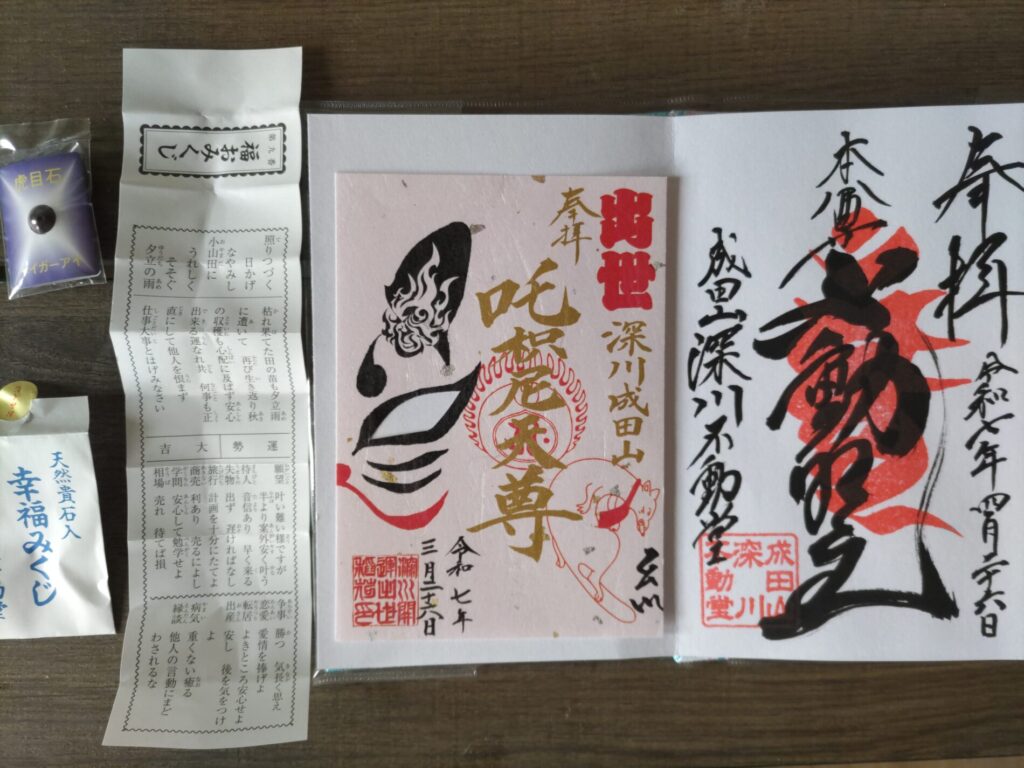 虎目石
イガーアイ
天然貴石入
幸福みくじ
第九番
福おみくじ
照りつづく
日かげ
なやみし
小山田に
うれしく
そそぐ
夕立の雨
枯れ果てた田の苗も夕立雨
に遭いて 再び生き返り秋
の収穫も心配に及ばず安心
出来る運なれ共 何事も正
直にして他人を恨まず
仕事大事とはげみなさい
運勢 大吉
願望 叶い難い様ですが
半より案外安く叶う
待人 音信あり 早く来る
失物 出ず 遅ければなし
旅行 計画を十分にたてよ
商売 利あり 売るによし
学問 安心して勉学せよ
相場 売れ 待てば損
争事 勝つ 気長く思え
恋愛 愛情を捧げよ
転居 よきところ安心せよ
出産 安し 後を気をつけ
よ
病気 重くない癒る
縁談 他人の言動にまど
わされるな
出世
深川成田山
奉拝
吒枳尼天尊
令和七年
三月二十六日
奉拝
令和七年四月二十六日
本尊
不動明王
成田山深川不動堂
成田山
深川
不動堂